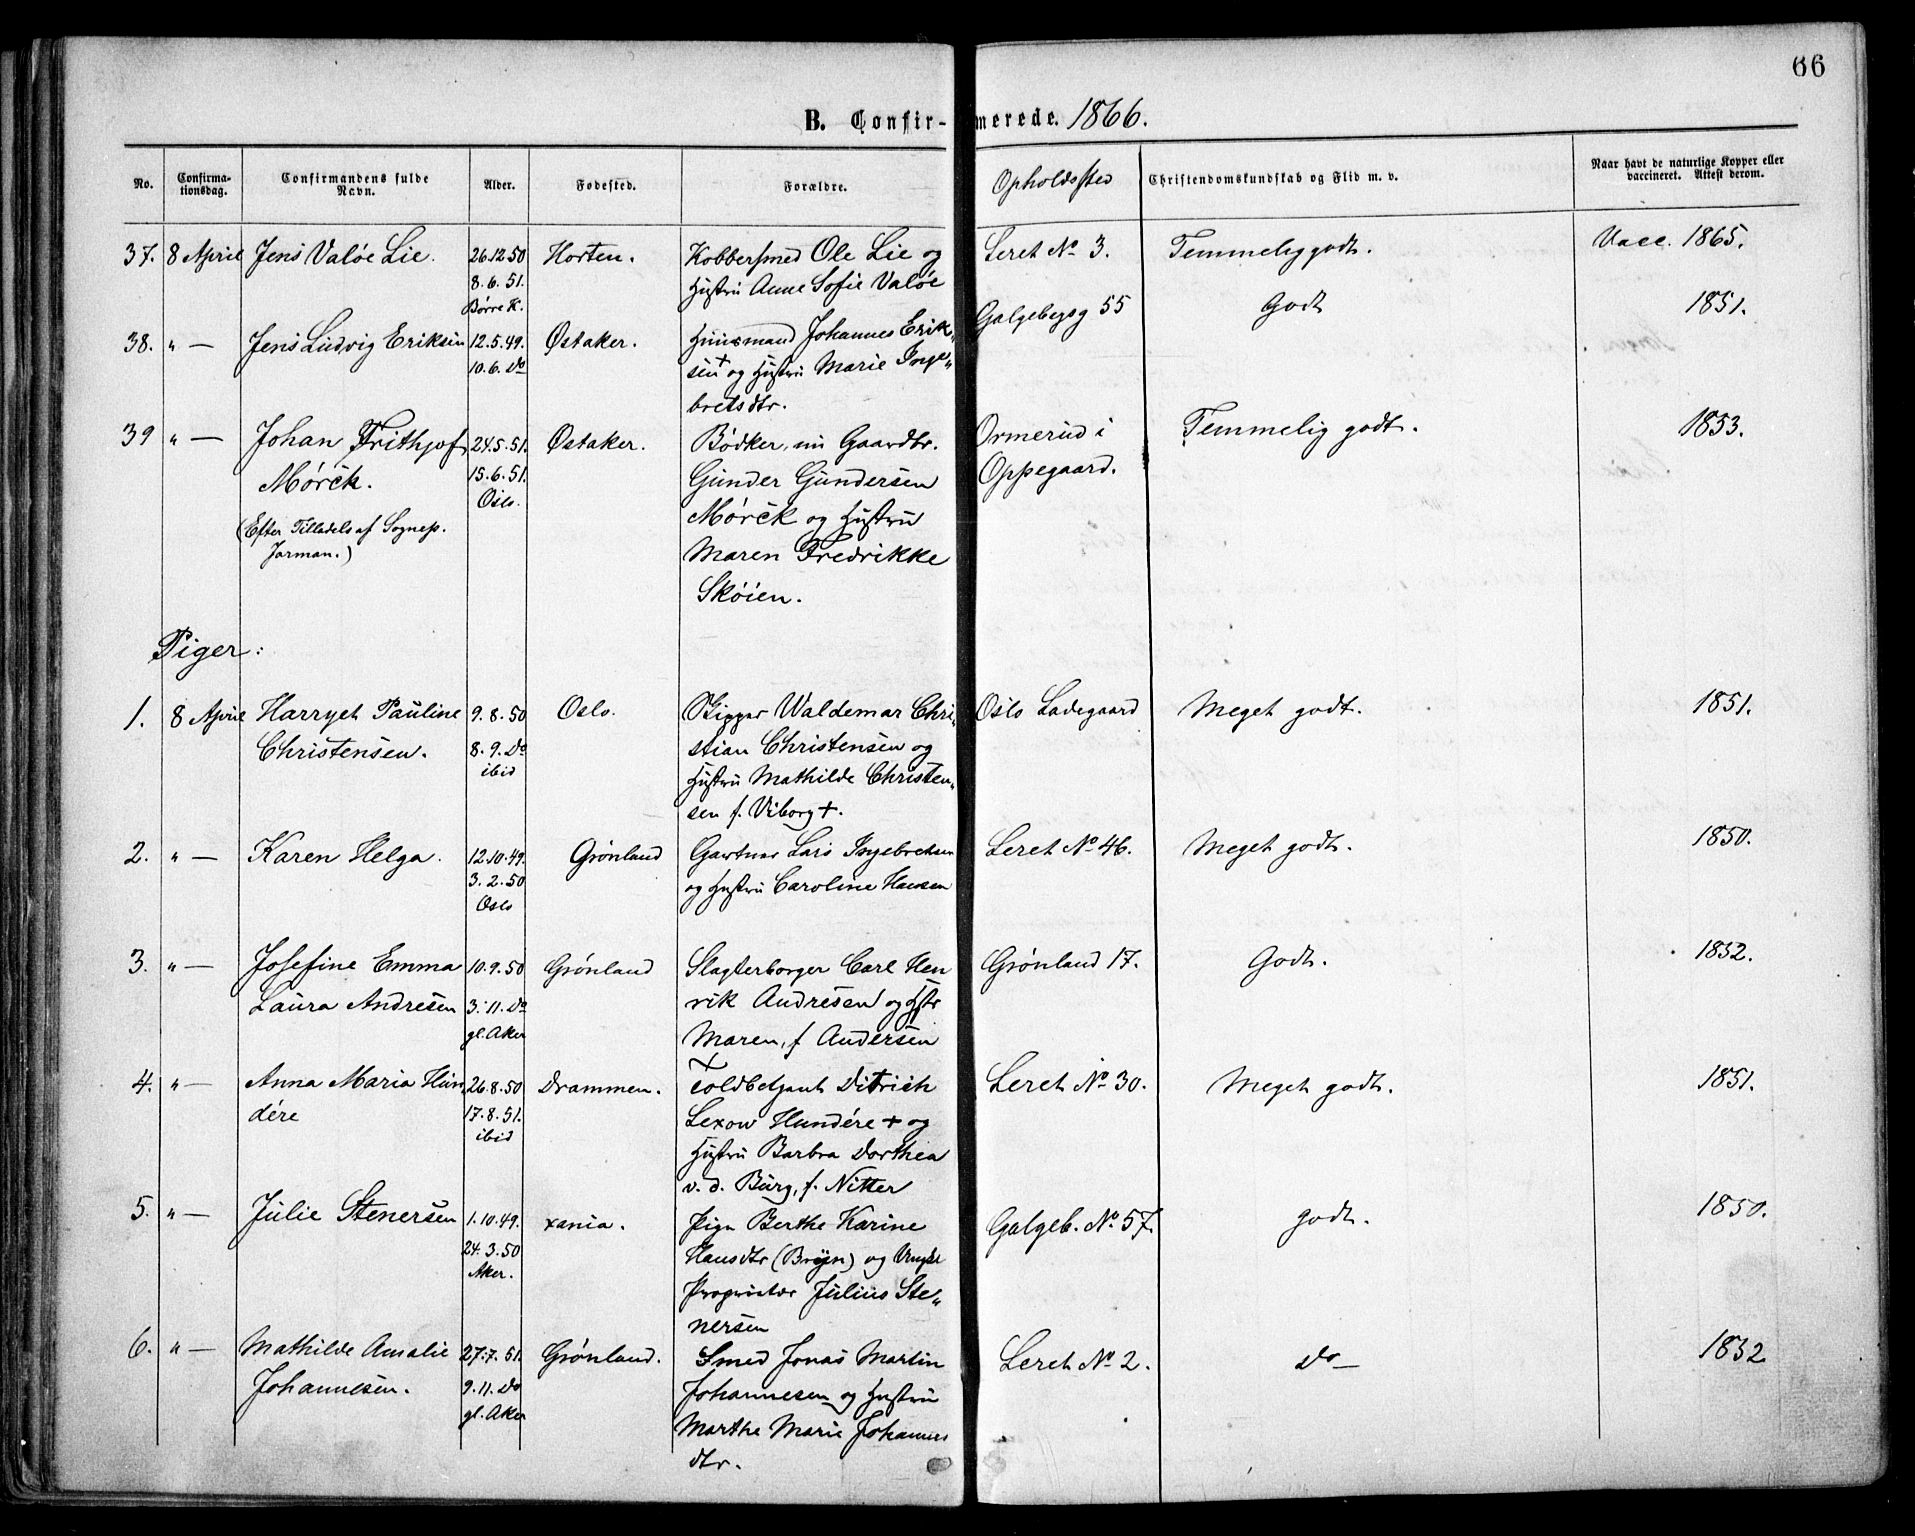 66
B. Confir-merede. 1866.
No. Confirma-tionsdag. Confirmandens fulde Navn. Alder. Fødested. Forældre. Opholdssted Christendomskundskab og Flid m. v. Naar havt de naturlige Kopper eller vaccineret. Attest derom.
37. 8 April Jens Valøe Lie. 26.12.50 Horten. Kobbersmed Ole Lie og Leret No 3. Temmelig godt. Vacc. 1865.
8.6.51. Hustru Anne Sofie Valøe
Børre K.
38. " — Jens Ludvig Eriksen 12.5.49. Østaker. Huusmand Johannes Erik- Galgebergg 55 Godt 1851.
10.6. Do sen + og Hustru Marie Inge-
bretsdtr.
39 " — Johan Frithjof 24.5.51. Østaker. Bødker, nu Gaardbr. Ormerud i Temmelig godt. 1853.
Mørck. 15.6.51. Gunder Gundersen Oppegaard.
Oslo. Mørck og Hustru
(Efter Tilladels af Sognep. Maren Fredrikke
Jarman.) Skøien.
Piger:
1. 8 April Harryet Pauline 9.8.50 Oslo. Skipper Waldemar Chri- Oslo Ladegaard Meget godt. 1851.
Christensen. 8.9. Do stian Christensen og
ibid Hustru Mathilde Christen-
sen f. Viborg +.
2. " — Karen Helga. 12.10.49. Grønland Gartner Lars Ingebretsen Leret No 46. Meget godt. 1850.
3.2.50 og Hustru Caroline Hansen
Oslo
3. " — Josefine Emma 10.9.50 Grønland Slagterborger Carl Hen Grønland 17. Godt. 1852.
Laura Andresen 3.11. Do rik Andresen og Hstr
gl. Aker Maren, f Andersen
4. " — Anna Maria Hun 26.8.50 Drammen. Toldbetjent Ditrich Leret No 30. Meget godt. 1851.
dére 17.8.51. Lexow Hundére + og
ibid Hustru Barbra Dorthea
v. d. Burg, f. Nitter
5. " — Julie Stenersen 1.10.49. xania. Pige Berthe Karine Galgeb. No 57. godt. 1850.
24.3.50 Hansdtr (Bryn) og
Aker. Proprietær Julius Ste-
nersen
6. " — Mathilde Amalie 27.7.51. Grønland. Smed Jonas Martin Leret No 2. Do — 1852
Johannesen. 9.11. Do Johannesen og Hustru
gl. Aker Marthe Marie Johannes
dtr.